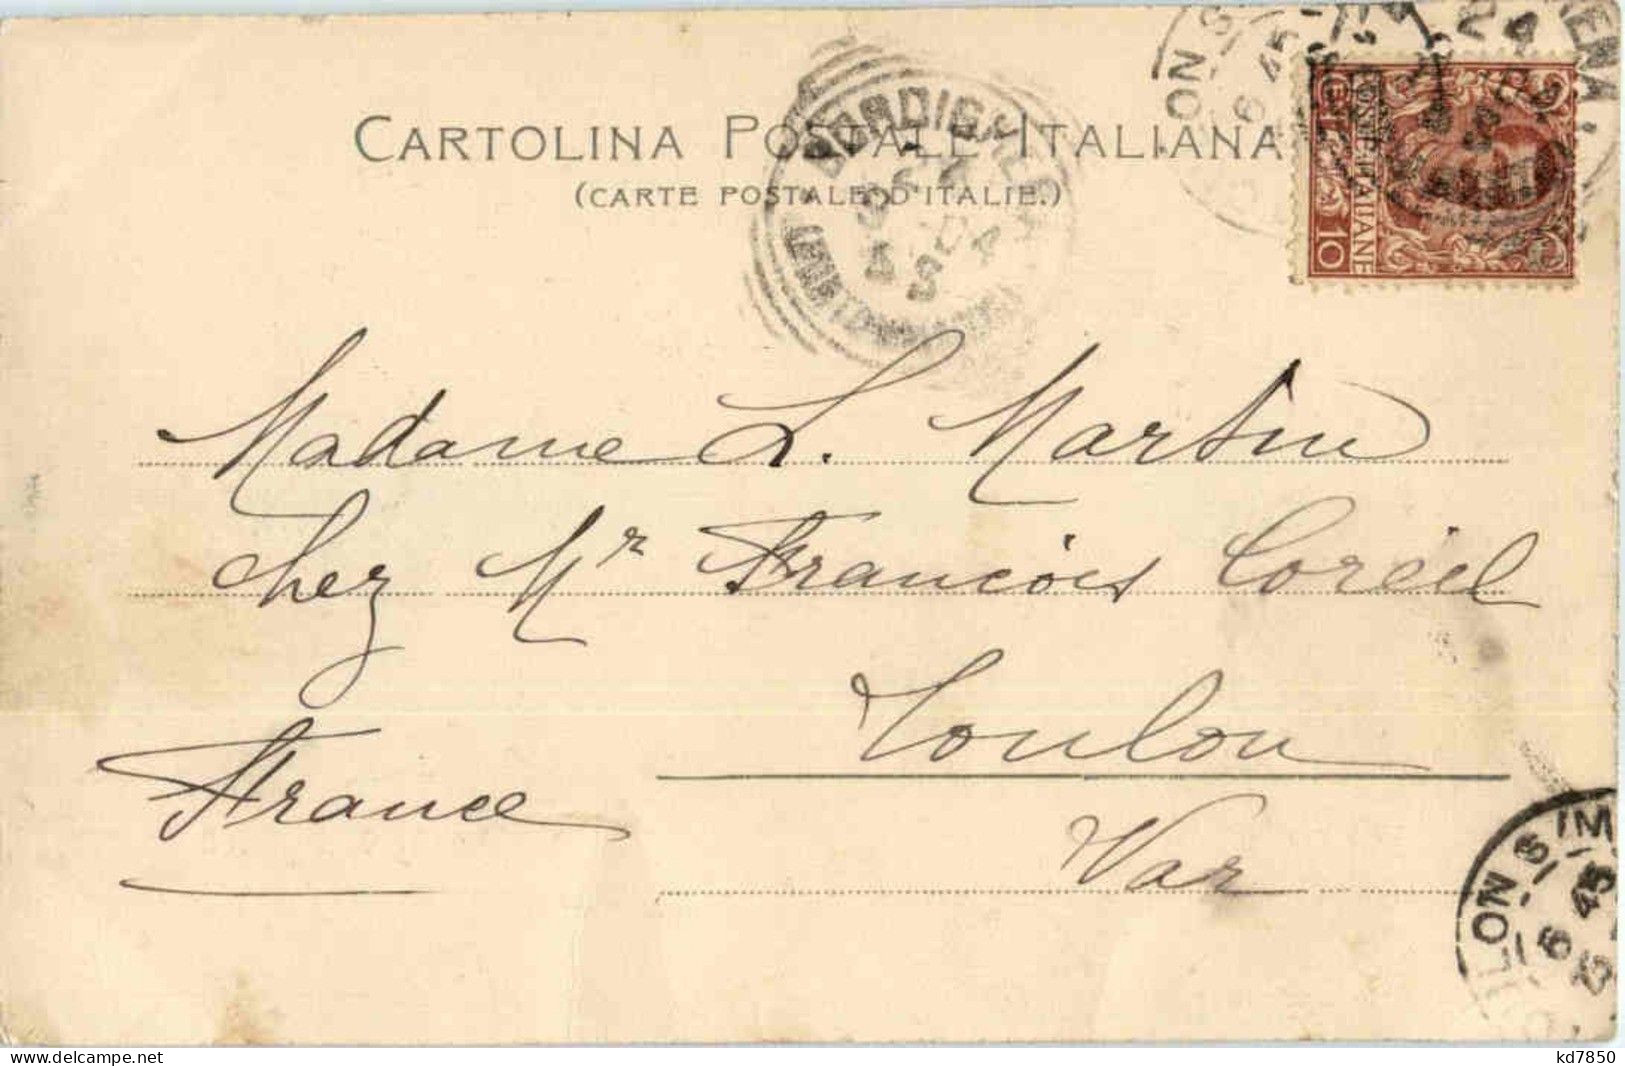 CARTOLINA POSTALE ITALIANA
(CARTE POSTALE D'ITALIE.)
BORDIGHERA
POSTE ITALIANE
10
Madame L. Martin
chez Mr François
Toulon
France
Var
6 45
delcampe.net
kd7850